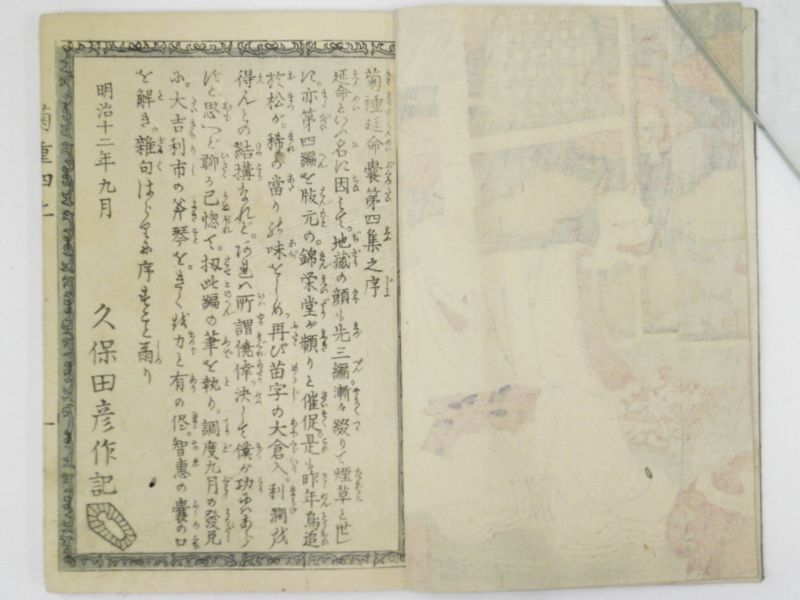 菊種延命嚢第四集之序
延命といふ名に因みて。地蔵の顔も先三編漸々綴りて煙草と世し
に亦第四編を版元の。錦栄堂が頻りと催促是も昨年鳥追
於松が。稀の當り の味をしめ。再び苗字の大倉入。利潤
得んとの結構なれど。 所謂僥倖決して僕が功 あら
じと思へど聊か己惚て。扨此編の筆を執り。調度九月の發兌
に。大吉利市の斧琴を。きく 力と有の侭。智惠の嚢の口
を解き。雜句 序 爾り
明治十二年九月
久保田彦作記
菊種四上
一